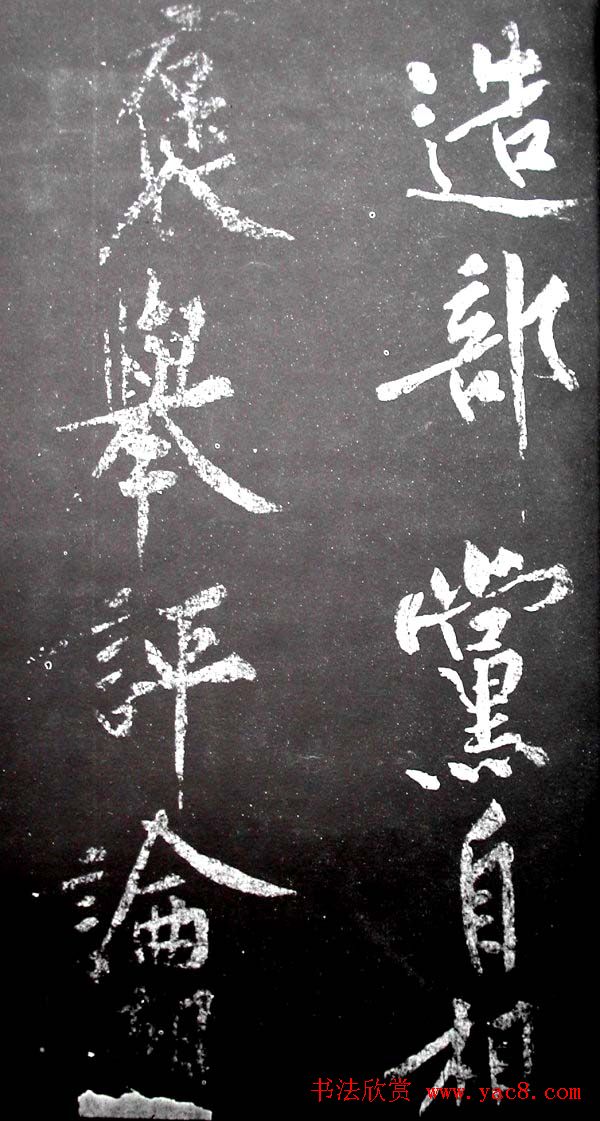 造部黨自相
褒舉評論朝
书法欣赏 www.yac8.com